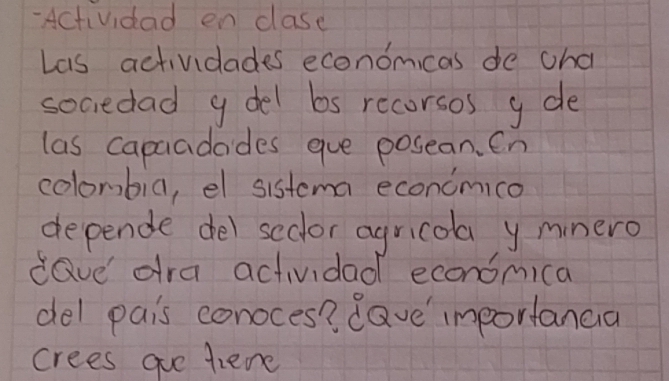 -Actividad en clase
Las actividades económicas de una
sociedad y del los recursos y de
las capacidades que posean. En
colombia, el sistema económico
depende del sector agricola y minero
¿Qué otra actividad económica
del país conoces? ¿Qué importancia
crees que tiene